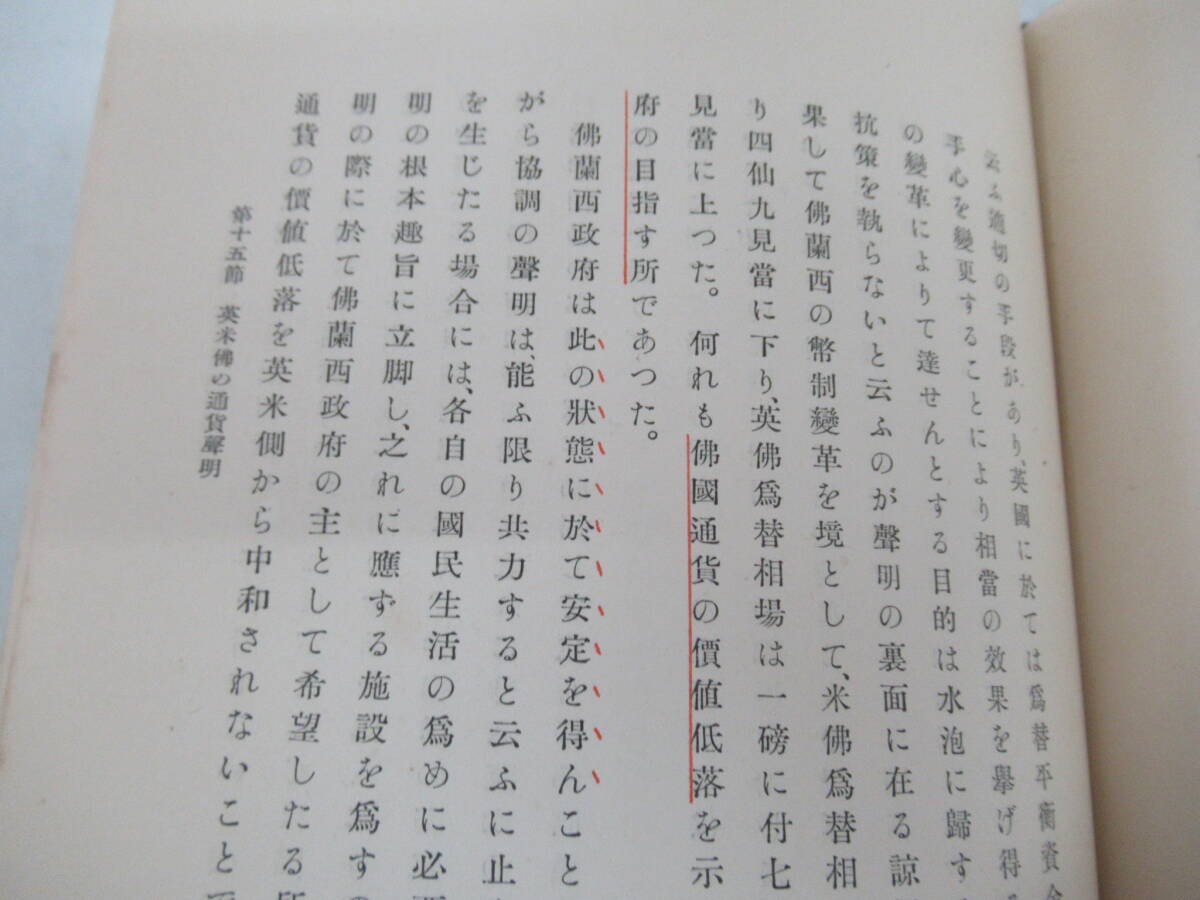 適切の手段があり、英國に於ては爲替平衡資金
手心を變更することにより相當の效果を擧げ得
の變革によりて達せんとする目的は水泡に歸す
抗策を執らないと云ふのが聲明の裏面に在る諒
果して佛蘭西の幣制變革を境として、米佛爲替相
り四仙九見當に下り、英佛爲替相場は一磅に付七
見當に上つた。何れも佛國通貨の價値低落を示
府の目指す所であつた。
佛蘭西政府は此の狀態に於て安定を得んこと
がら協調の聲明は、能ふ限り共力すると云ふに止
を生じたる場合には、各自の國民生活の爲めに必
明の根本趣旨に立脚し、之れに應ずる施設を爲す
明の際に於て佛蘭西政府の主として希望したる
通貨の價値低落を英米側から中和されないこと
第十五節 英米佛の通貨聲明